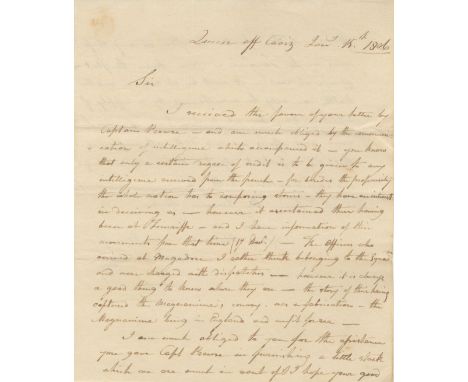 Queen off Cadiz Jany. 18.th 1806
Sir
I received the favour of your letter by
Captain Browne – and am much obliged by the commun-
ication of intelligence which accompanied it – you know
that only a certain degree of credit is to be given to any
intelligence received from the french – for besides the propensity
the whole nation has to composing stories – they have
in deceiving us – however it ascertained their having
been at Teneriffe – and I have information of their
movements from that time (17 Novr.) – The Officers who
arrived at Mogadore I rather think belonging to the Squad
and were charged with dispatches – however it is always
a good thing to know where they are – the story of their having
captured the Magnanimes convoy was a fabrication – the
Magnanime being in England and unfit for sea –
I am much obliged to you for the assistance
you gave Capt Browne in furnishing a little stock
which we are much in want of I hope your good